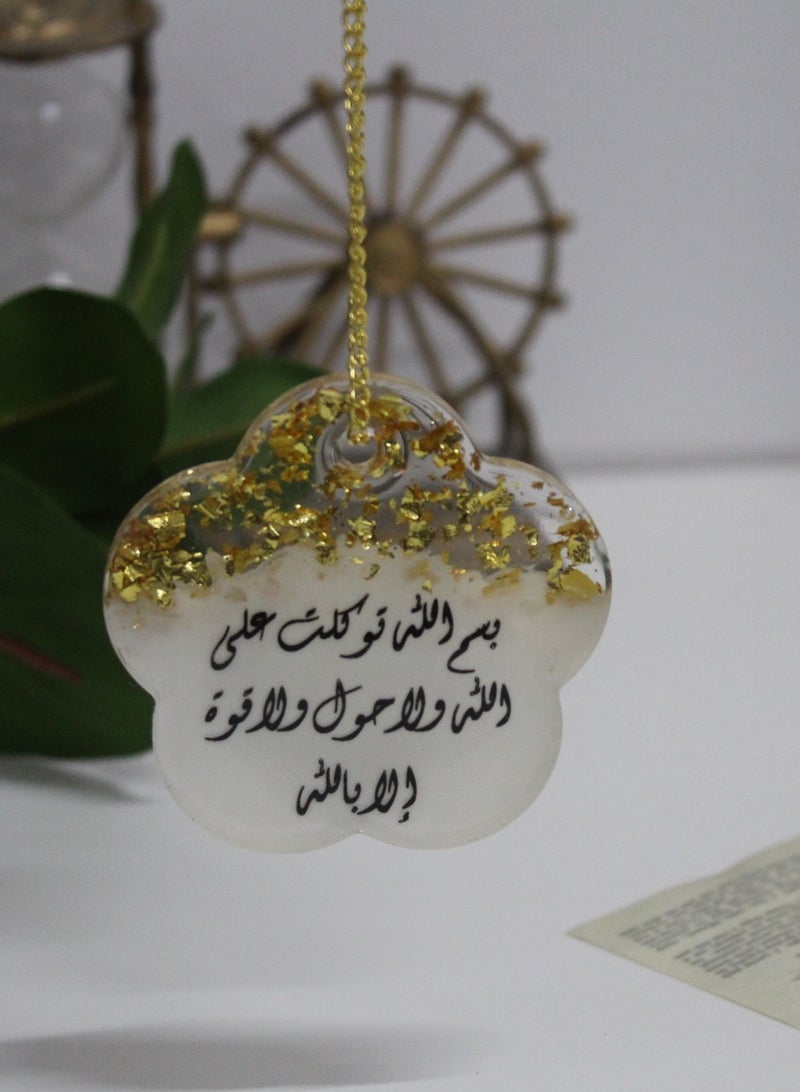 بسم الله توكلت على
الله ولا حول ولا قوة
إلا بالله